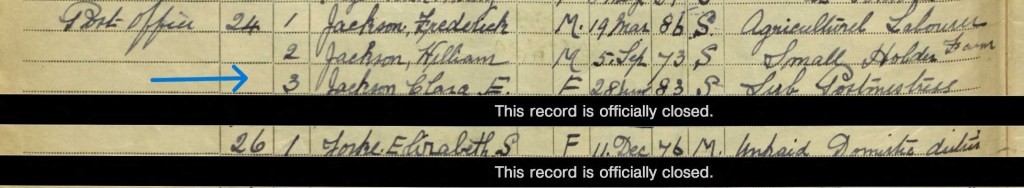 Post Office 24 1 Jackson, Frederick M. 19 Mar 86 S Agricultural Labourer
2 Jackson, William M 5 Sep 73 S Small Holder Farm
3 Jackson Clara E. F 28 Jun 83 S Sub Postmistress
This record is officially closed.
26 1 Elizabeth S F 11 Dec 76 M. Unpaid Domestic duties
This record is officially closed.